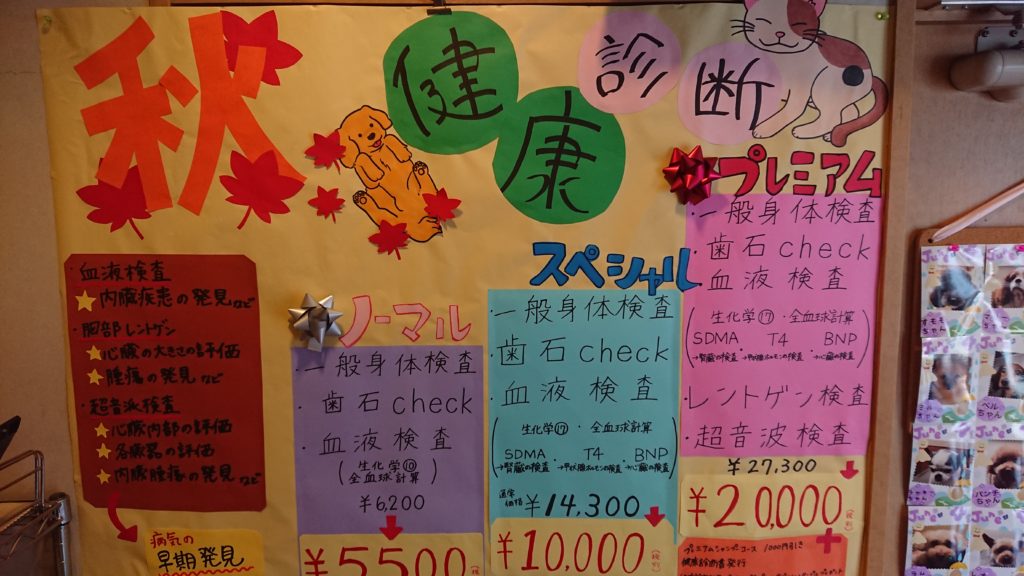 秋健康診断
・血液検査
内臓疾患の発見など
・胸部レントゲン
心臓の大きさの評価
腫瘍の発見など
・超音波検査
心臓内部の評価
各臓器の評価
内臓腫瘍の発見など
病気の
早期発見
ノーマル
・一般身体検査
・歯石check
・血液検査
(生化学⑩
全血球計算)
¥6,200
¥5500(税別)
スペシャル
・一般身体検査
・歯石check
・血液検査
(生化学⑰・全血球計算
SDMA・T4・BNP
→腎臓の検査→甲状腺ホルモンの検査→心臓の検査)
通常
価格
¥14,300
¥10,000(税別)
プレミアム
・一般身体検査
・歯石check
・血液検査
(生化学⑰・全血球計算
SDMA T4 BNP
→腎臓の検査→甲状腺ホルモンの検査→心臓の検査)
・レントゲン検査
・超音波検査
¥27,300
¥20,000(税別)
+
プレミアムシャンプーコース 1000円引き
健康診断書発行